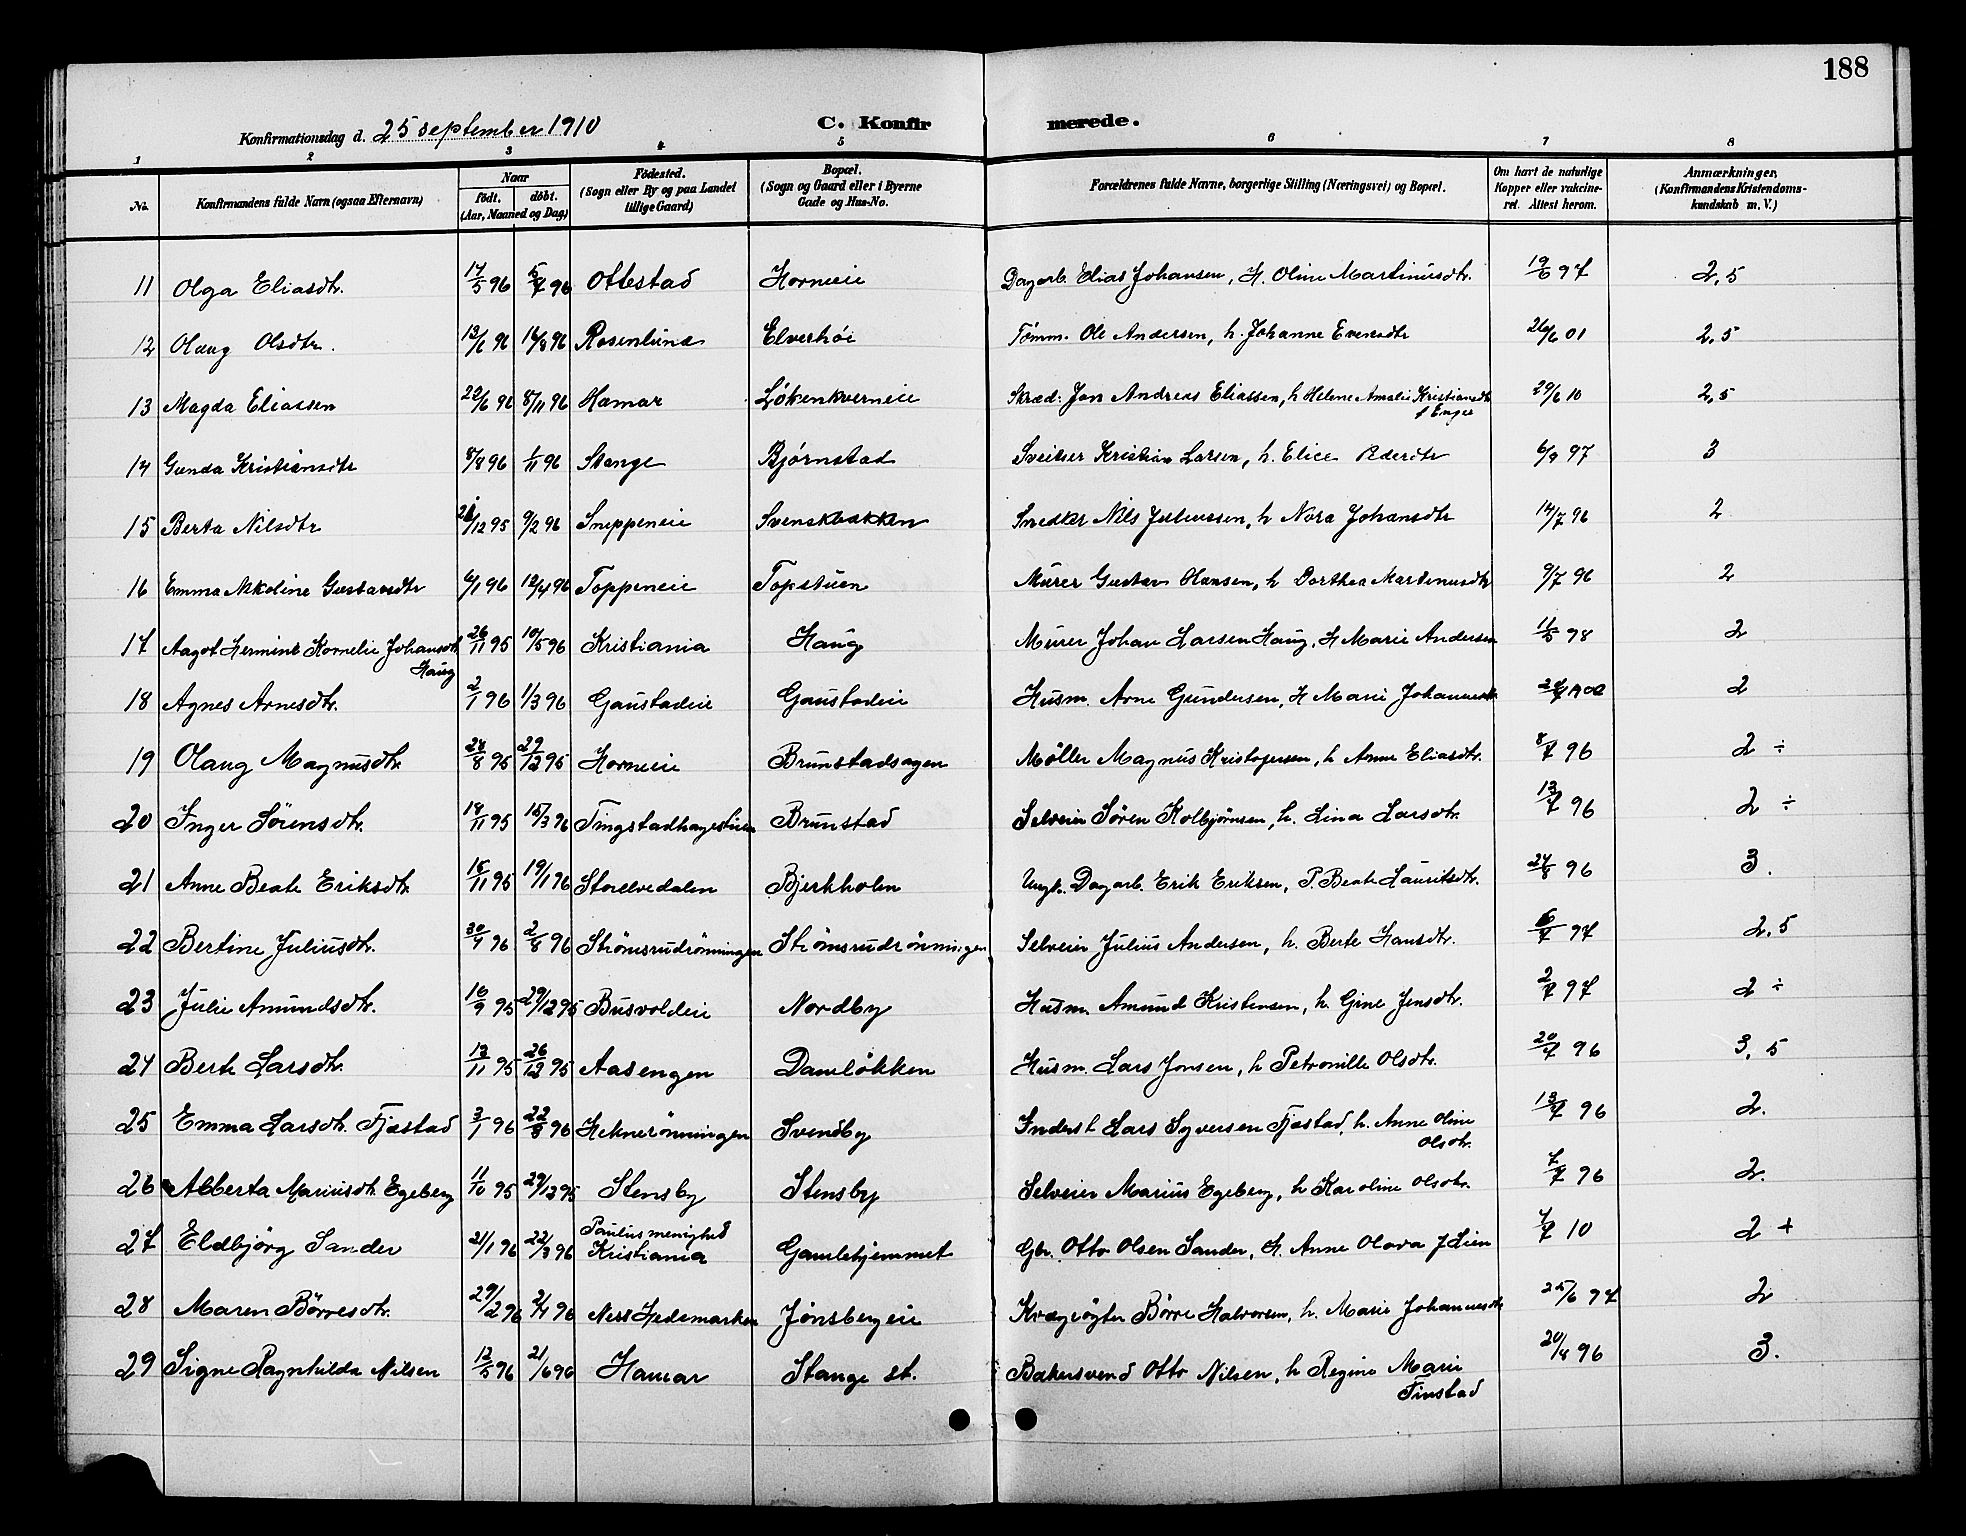 188
Konfirmationsdag d. 25 september 1910 C. Konfirmerede.
1 2 3 4 5 6 7 8
No. Konfirmandens fulde Navn (ogsaa Efternavn) Naar født. døbt. (Aar, Maaned og Dag) Fødested. (Sogn eller By og paa Landet tillige Gaard) Bopæl. (Sogn og Gaard eller i Byerne Gade og Hus-No. Forældrenes fulde Navne, borgerlige Stilling (Næringsvei) og Bopæl. Om havt de naturlige Kopper eller vakcineret. Attest herom. Anmærkninger, (Konfirmandens Kristendomskundskab m. V.)
11 Olga Eliasdtr. 17/5 96 5/7 96 Ottestad Horneie Dagarb. Elias Johansen, H. Oline Martinusdtr. 19/6 97 2,5
12 Olaug Olsdtr. 13/6 96 16/8 96 Rosenlund Elverhöi Tömm. Ole Andersen, h. Johanne Evensdtr 26/6 01 2,5
13 Magda Eliassen 22/6 96 8/11 96 Hamar Løkenkverneie Skræd: Jon Andreas Eliassen, h Helene Amalie Kristiansdtr f Enger 29/6 10 2,5
14 Gunda Kristiansdtr 8/8 96 1/11 96 Stange Bjørnstad Sveitser Kristian Larsen, h. Elice Pedersdtr 6/9 97 3
15 Berta Nilsdtr 12 95 9/2 96 Sneppeneie Svenskbakken Snedker Nils Juliussen, h Nora Johansdtr 14/7 96 2
16 Emma Nikoline Gustavsdtr 6/1 96 12/4 96 Toppeneie Topstuen Murer Gustav Hansen, h Dorthea Martinusdtr 9/7 96 2
17 Aagot Hermine Kornelie Johansdtr. Haug 26/11 95 10/5 96 Kristiania Haug Murer Johan Larsen Haug, H Marie Andersen 11/5 98 2
18 Agnes Arnesdtr. 2/1 96 1/3 96 Gaustadeie Gaustadeie Husm. Arne Gundersen, H Marie Johannesdtr 1900 2
19 Olaug Magnusdtr. 24/8 95 29/12 95 Horneie Brunstadsagen Møller Magnus Kristofersen, h Anne Eliasdtr. 8/7 96 2 ÷
20 Inger Sörensdtr. 18/11 95 15/3 96 Tingstadhagestuen Brunstad Selveier Sören Kolbjörnsen, h. Lina Larsdtr. 13/7 96 2 ÷
21 Anne Beate Eriksdtr 15/11 95 19/1 96 Storelvedalen Bjerkholen Ungk. Dagarb. Erik Eriksen, P. Beate Lauritsdtr. 24/8 96 3.
22 Bertine Juliusdtr. 30/7 96 2/8 96 Strömsrudrönningen Strömsrudrönningen Selveier Julius Andersen, h. Berte Hansdtr. 6/7 97 2,5
23 Julie Amundsdtr. 16/9 95 29/12 95 Busvoldeie Nordby Husm. Amund Kristensen, h. Gine Jensdtr. 2/7 97 2 ÷
24 Berte Larsdtr. 13/11 95 26/12 95 Aasengen Damlökken Husm. Lars Jonsen, h Petronille Olsdtr. 20/7 96 3,5
25 Emma Larsdtr. Fjæstad 3/1 96 22/3 96 Heknerönningen Svendby Inderst Lars Syversen Fjæstad, h. Anne Oline Olsdtr. 13/7 96 2.
26 Alberta Mariusdtr. Egeberg 11/10 95 29/12 95 Stensby Stensby Selveier Marius Egeberg, h Karoline Olsdtr. 7/7 96 2.
27 Eldbjörg Sander 21/1 96 22/3 96 Paulus menighed Kristiania Gamlehjemmet Gbr. Otto Olsen Sander, H. Anne Olava f Lien 7/7 10 2 +
28 Maren Börresdtr. 29/2 96 2/4 96 Nes Hedemarken Jønsbergeie Kvægrögter Börre Halvorsen, h. Marie Johannesdtr 25/6 97 2
29 Signe Ragnhilda Nilsen 12/5 96 21/6 96 Hamar Stange st. Bakersvend Otto Nilsen, h Regine Marie Finstad 20/8 96 3.